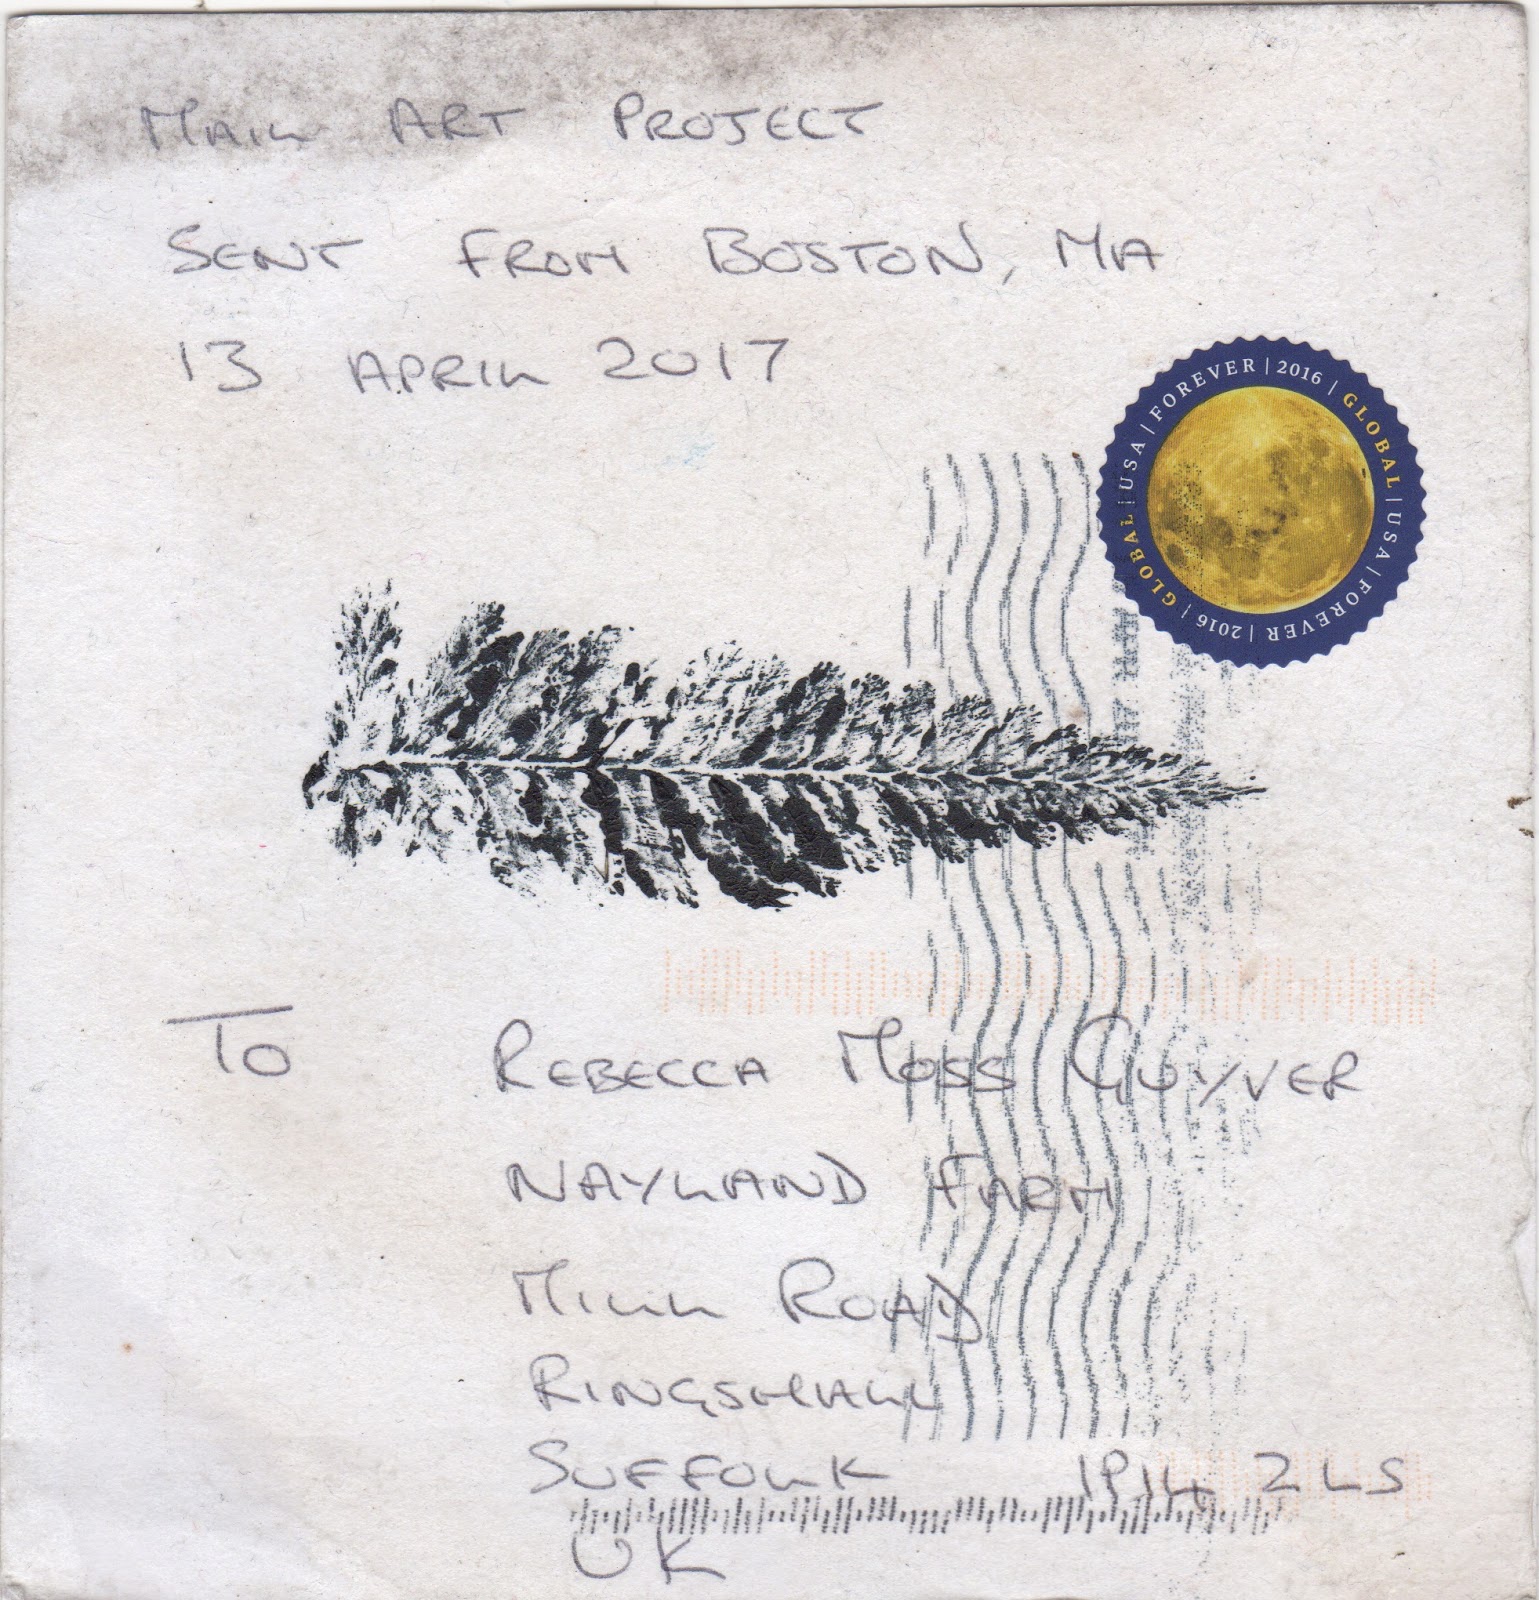 MAIL ART PROJECT
SENT FROM BOSTON, MA
13 APRIL 2017
GLOBAL | USA | FOREVER | 2016 | GLOBAL | USA | FOREVER | 2016 |
TO REBECCA MOSS GUYVER
NAYLAND FARM
MILL ROAD
RINGSHALL
SUFFOLK IP14 2LS
UK